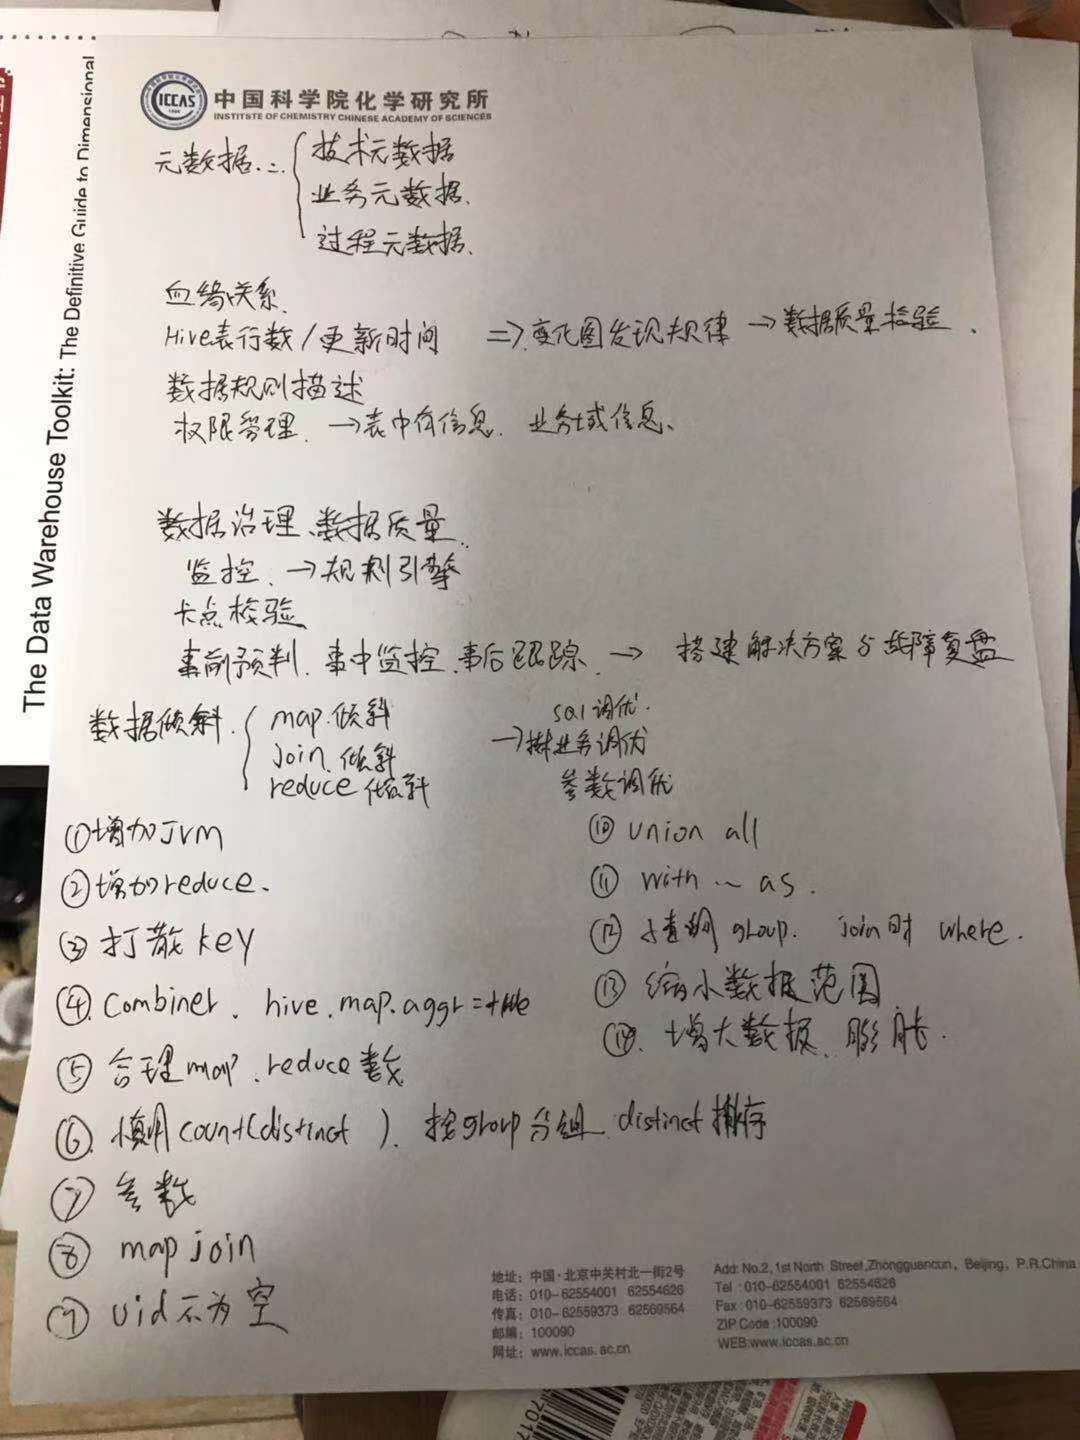 The Data Warehouse Toolkit: The Definitive Guide to Dimensional
ICCAS
中国科学院化学研究所
INSTITSTE OF CHEMISTRY CHINESE ACADEMY OF SCIENCES
元数据
技术元数据
业务元数据、
过程元数据、
血缘关系、
Hive表行数/更新时间 => 变化图发现规律 → 数据质量检验.
数据规则描述
权限管理、→表中有信息、业务域信息、
数据治理、数据质量、
监控、→规则引擎
卡点校验
事前预判、事中监控、事后跟踪、→ 搭建解决方案与故障复盘
数据倾斜.
map.倾斜
join.倾斜
reduce倾斜
sql调优.
→业务调优
参数调优
①增加Jvm
②增加reduce、
③打散key
④combiner、hive.map.aggr=true
⑤合理map、reduce数
⑥慎用count(distinct )、按group分组、distinct
⑦参数
⑧map join
⑨uid不为空
⑩union all
⑪with ~ as.
⑫子查询group. join时where.
⑬缩小数据范围
⑭、增大数据、膨胀.
地址：中国·北京中关村北一街2号
电话：010-62554001 62554626
传真：010-62559373 62569564
邮编：100090
网址：www.iccas.ac.cn
Add: No.2, 1st North Street,Zhongguancun, Beijing, P.R.China
Tel :010-62554001 62554626
Fax :010-62559373 62569564
ZIP Code :100090
WEB:www.iccas.ac.cn